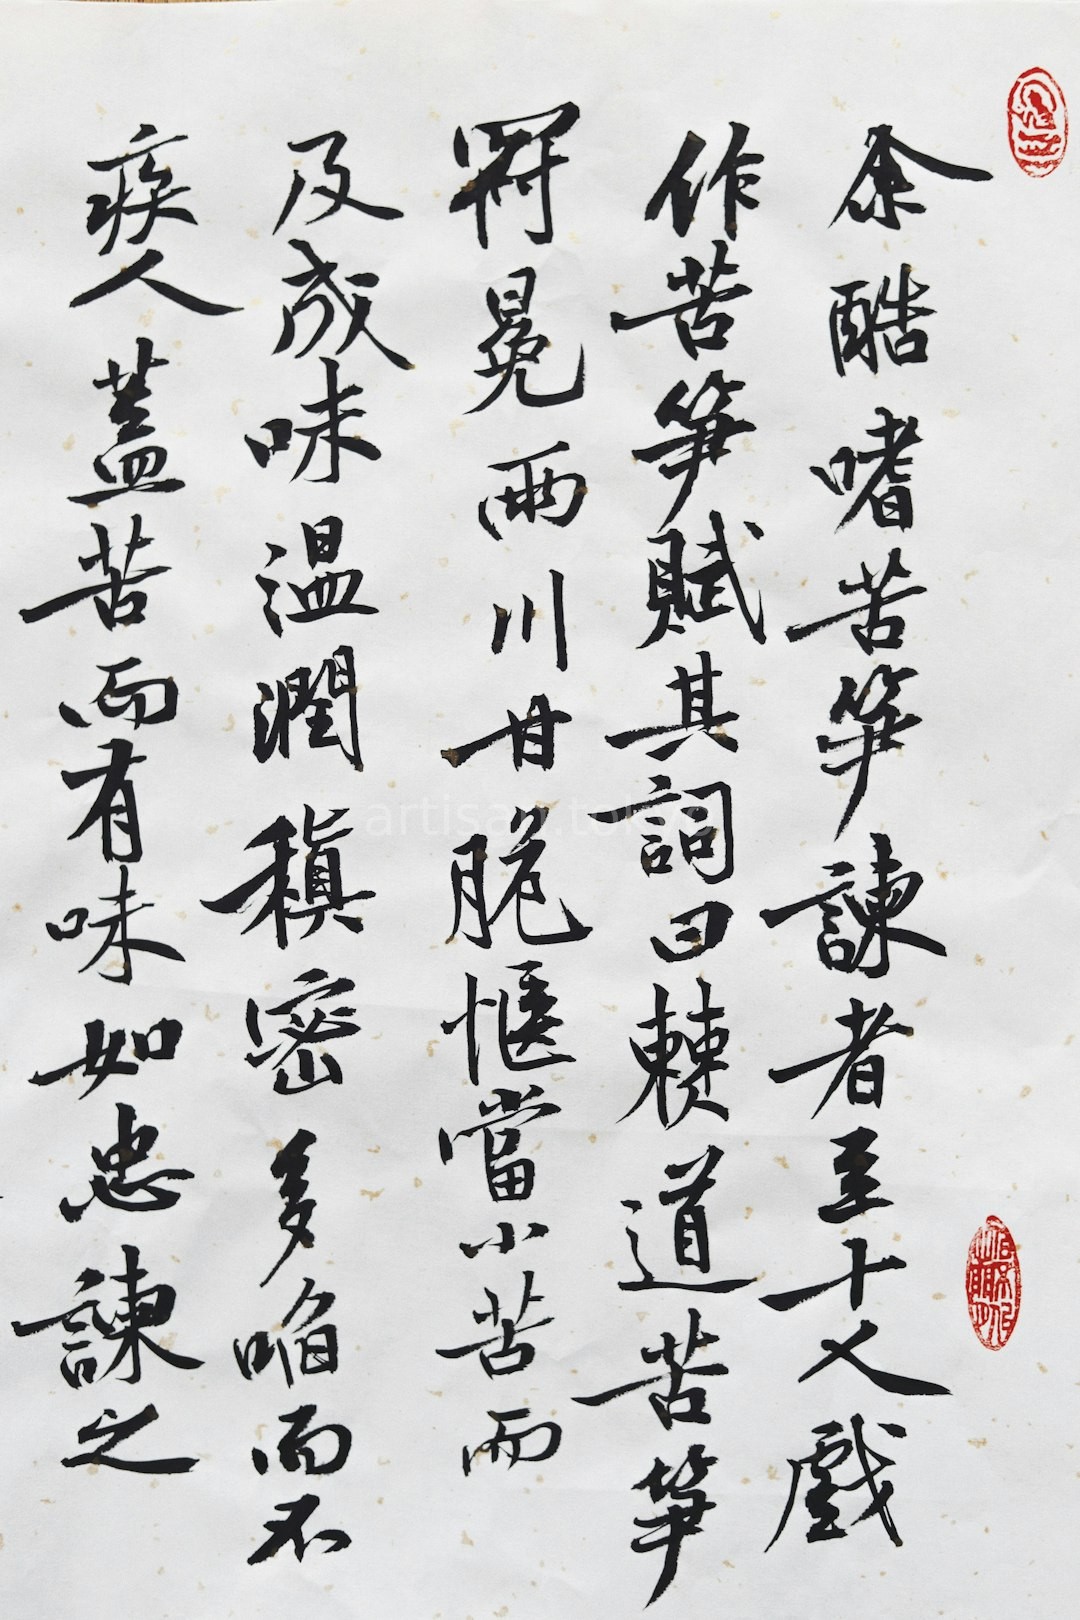 余酷嗜苦笋諫者至十人戲
作苦笋賦其詞曰僰道苦笋
冠冕兩川甘脆愜當小苦而
及成味温潤稹密多啗而不
疾人蓋苦而有味如忠諫之
artisan.tokyo